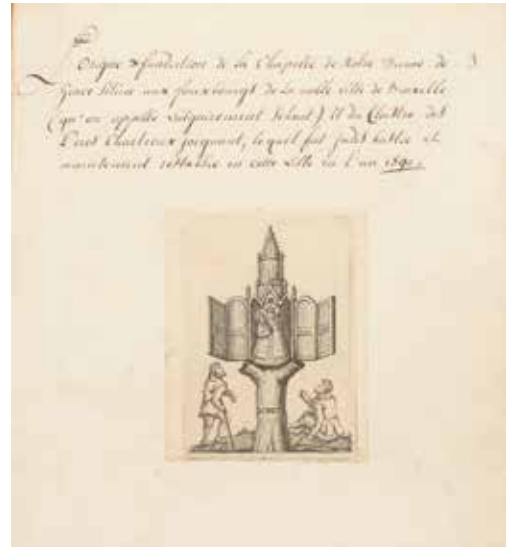 Origine & fondation de la Chapelle de Notre Dame de
Grace située aux fauxbourgs de la noble ville de Bruxelle
(qu'on appelle vulgairement Scheut) Et du Cloître des
Peres Chartreux joignant, lequel fut jadis battie et
maintenant rettablie en cette ville en l'an